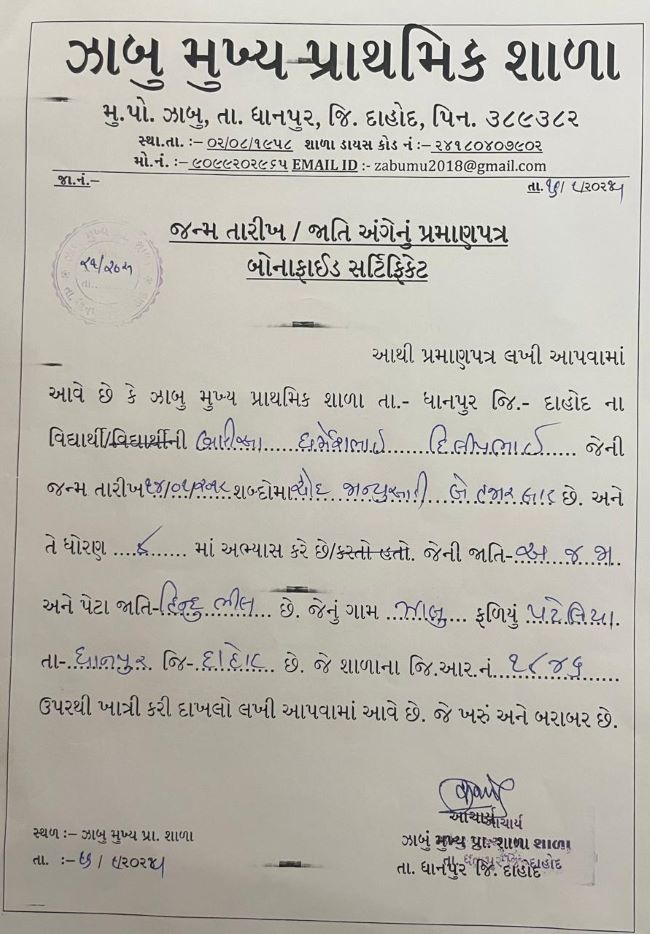 ઝાબુ મુખ્ય પ્રાથમિક શાળા
મુ.પો. ઝાબુ, તા. ધાનપુર, જિ. દાહોદ, પિન. ૩૮૯૩૮૨
સ્થા.તા. :– ૦૨/૦૮/૧૯૫૮ શાળા ડાયસ કોડ નં :– ૨૪૧૮૦૪૦૭૯૦૨
મો.નં. :– ૯૦૯૯૨૦૨૯૬૫ EMAIL ID :- zabumu2018@gmail.com
જા.નં.–
તા.
જન્મ તારીખ / જાતિ અંગેનું પ્રમાણપત્ર
બોનાફાઈડ સર્ટિફિકેટ
આથી પ્રમાણપત્ર લખી આપવામાં
આવે છે કે ઝાબુ મુખ્ય પ્રાથમિક શાળા તા.- ધાનપુર જિ.- દાહોદ ના
વિદ્યાર્થી/વિદ્યાર્થીની બારીઆ ધર્મેશભાઈ દિલીપભાઈ જેની
જન્મ તારીખ શબ્દોમાં ચૌદ જાન્યુઆરી બે હજાર છે. અને
તે ધોરણ ....... માં અભ્યાસ કરે છે/કરતો હતો. જેની જાતિ- અ જ જા
અને પેટા જાતિ- હિન્દુ ભીલ છે. જેનું ગામ ઝાબુ ફળિયું પટેલિયા.
તા- ધાનપુર જિ- દાહોદ છે. જે શાળાના જિ.આર.નં ૧૮૪૬
ઉપરથી ખાત્રી કરી દાખલો લખી આપવામાં આવે છે. જે ખરું અને બરાબર છે.
આચાર્ય
સ્થળ :– ઝાબુ મુખ્ય પ્રા. શાળા
ઝાબું મુખ્ય પ્રા. શાળા
તા. :–
તા. ધાનપુર જિ. દાહોદ